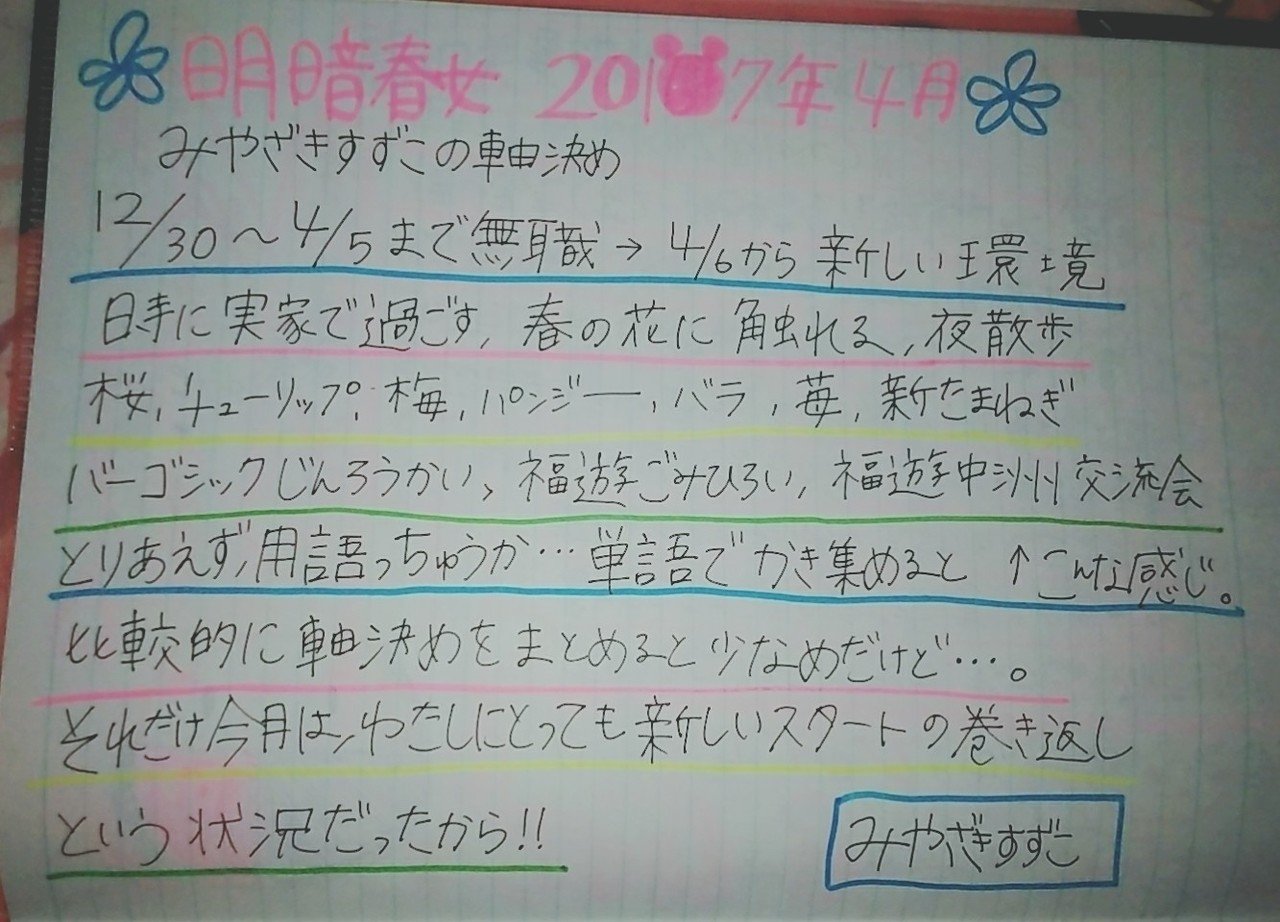 明暗春女 2017年4月
みやざきすずこの軸決め
12/30〜4/5まで無職→4/6から新しい環境
日時に実家で過ごす,春の花に触れる,夜散歩
桜,チューリップ,梅,パンジー,バラ,苺,新たまねぎ
バーゴシックじんろうかい、福遊ごみひろい,福遊中洲州交流会
とりあえず,用語っちゅうか…単語でかき集めると ↑こんな感じ。
比較的に軸決めをまとめると少なめだけど…。
それだけ今月は,わたしにとっても新しいスタートの巻き返し
という状況だったから!!
みやざきすずこ